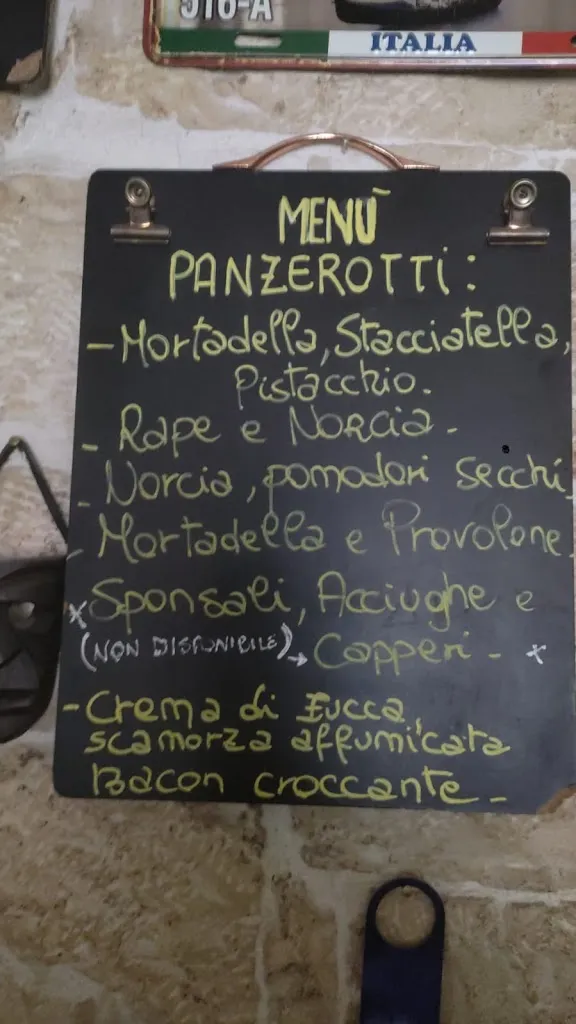 516-A
ITALIA
MENÙ
PANZEROTTI:
- Mortadella, Stacciatella,
Pistacchio.
- Rape e Norcia -
- Norcia, pomodori secchi
- Mortadella e Provolone
x Sponsali, Acciughe e
(NON DISPONIBILE) → Capperi - x
- Crema di zucca,
scamorza affumicata
Bacon croccante -